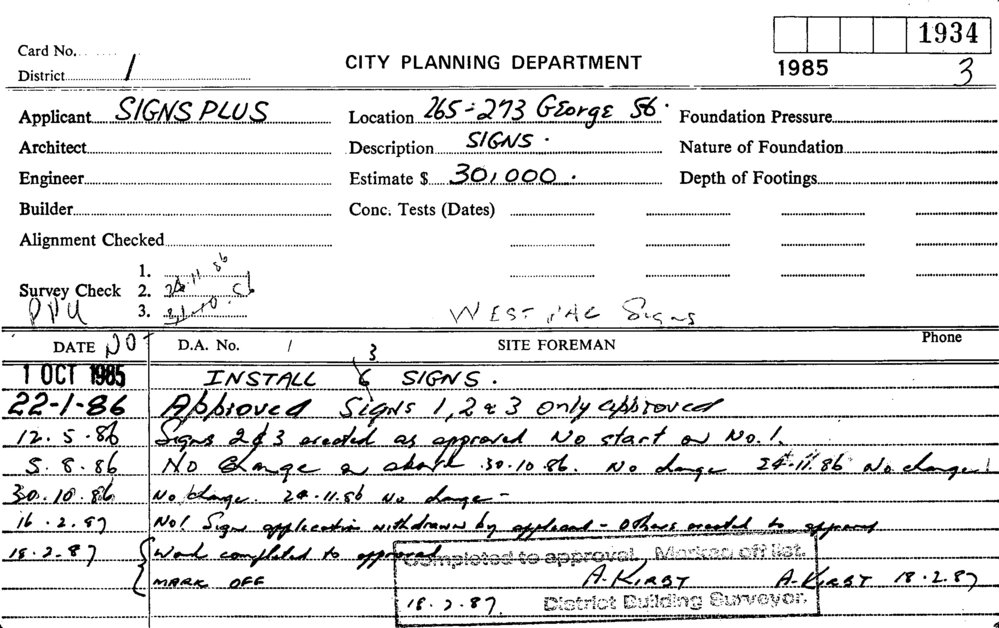 Card No.
1934
District 1
CITY PLANNING DEPARTMENT
1985
3
Applicant SIGNS PLUS
Location 265-273 George St.
Foundation Pressure
Architect
Description SIGNS.
Nature of Foundation
Engineer
Estimate $ 301,000.
Depth of Footings
Builder
Conc. Tests (Dates)
Alignment Checked
1.
Survey Check 2. 24.11.86
3. 31.10.86
WESTPAC Signs
DATE
D.A. No.
SITE FOREMAN
Phone
1 OCT 1985 INSTALL 6 3 SIGNS.
22-1-86 Approved Signs 1, 2 & 3 only approved
12.5.86 Signs 2 & 3 erected as approved No start on No. 1.
5.8.86 No Change on above 30.10.86. No change 24.11.86 No change!
30.10.86 No change. 24.11.86 No change -
16.2.87 No 1 Sign application withdrawn by applicant - Others erected to approval
18.2.87 Work completed to approval
Completed to approval. Marked off list.
MARK OFF A. KIRBY A. KIRBY 18.2.87
18.2.87. District Building Surveyor.